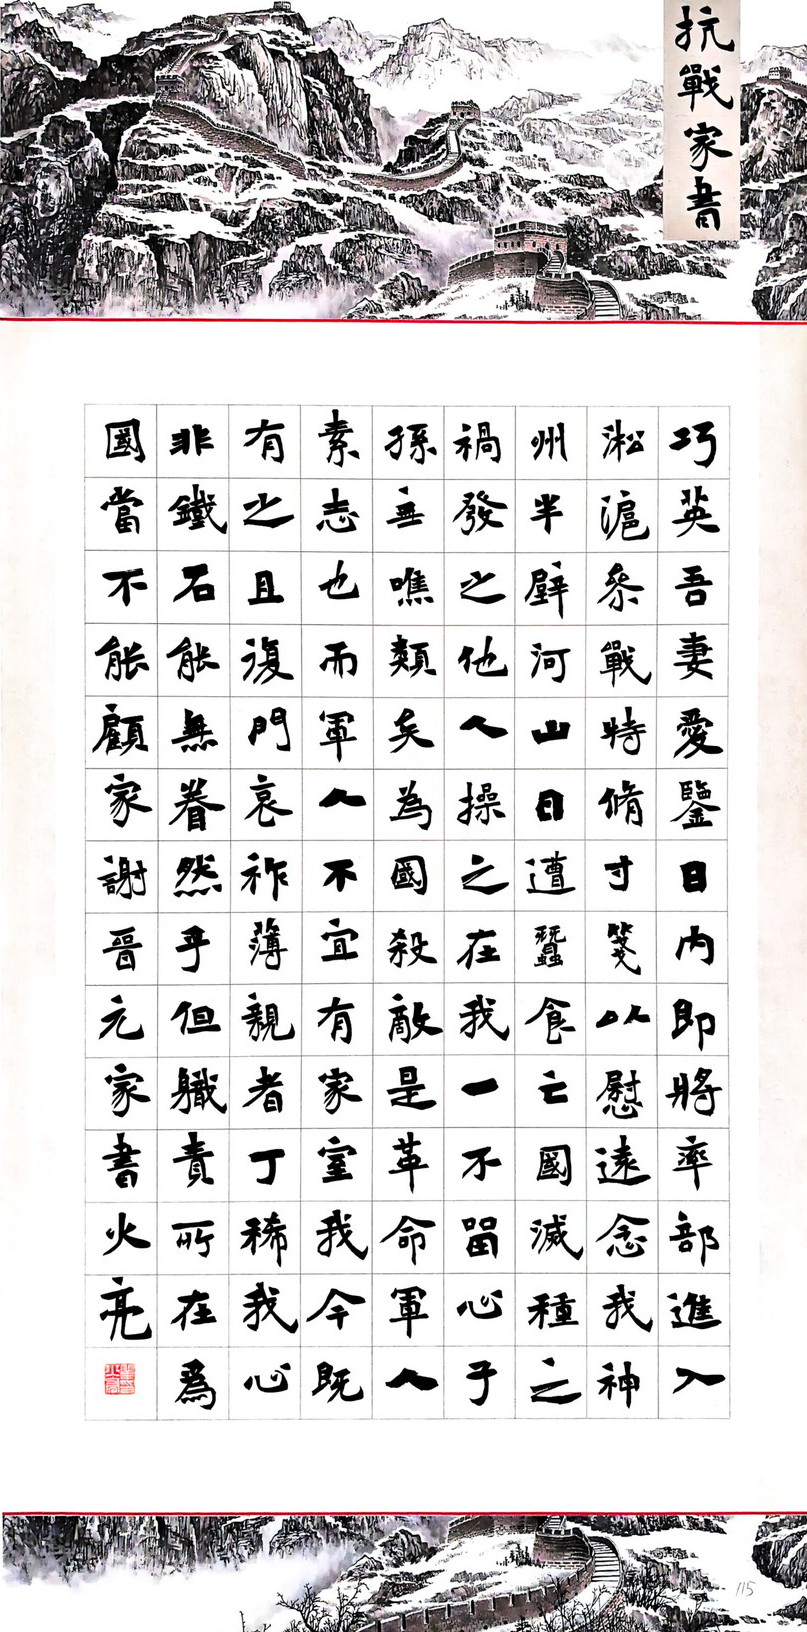 抗戰家書
巧英吾妻愛鑒日内即將率部進入
淞滬参戰特脩寸箋以慰遠念我神
州半壁河山日遭蠶食亡國滅種之
禍發之他人操之在我一不留心子
孫無噍類矣為國殺敵是革命軍人
素志也而軍人不宜有家室我今既
有之且復門衰祚薄親者丁稀我心
非鐵石能無眷然乎但職責所在爲
國當不能顧家謝晉元家書火亮
115